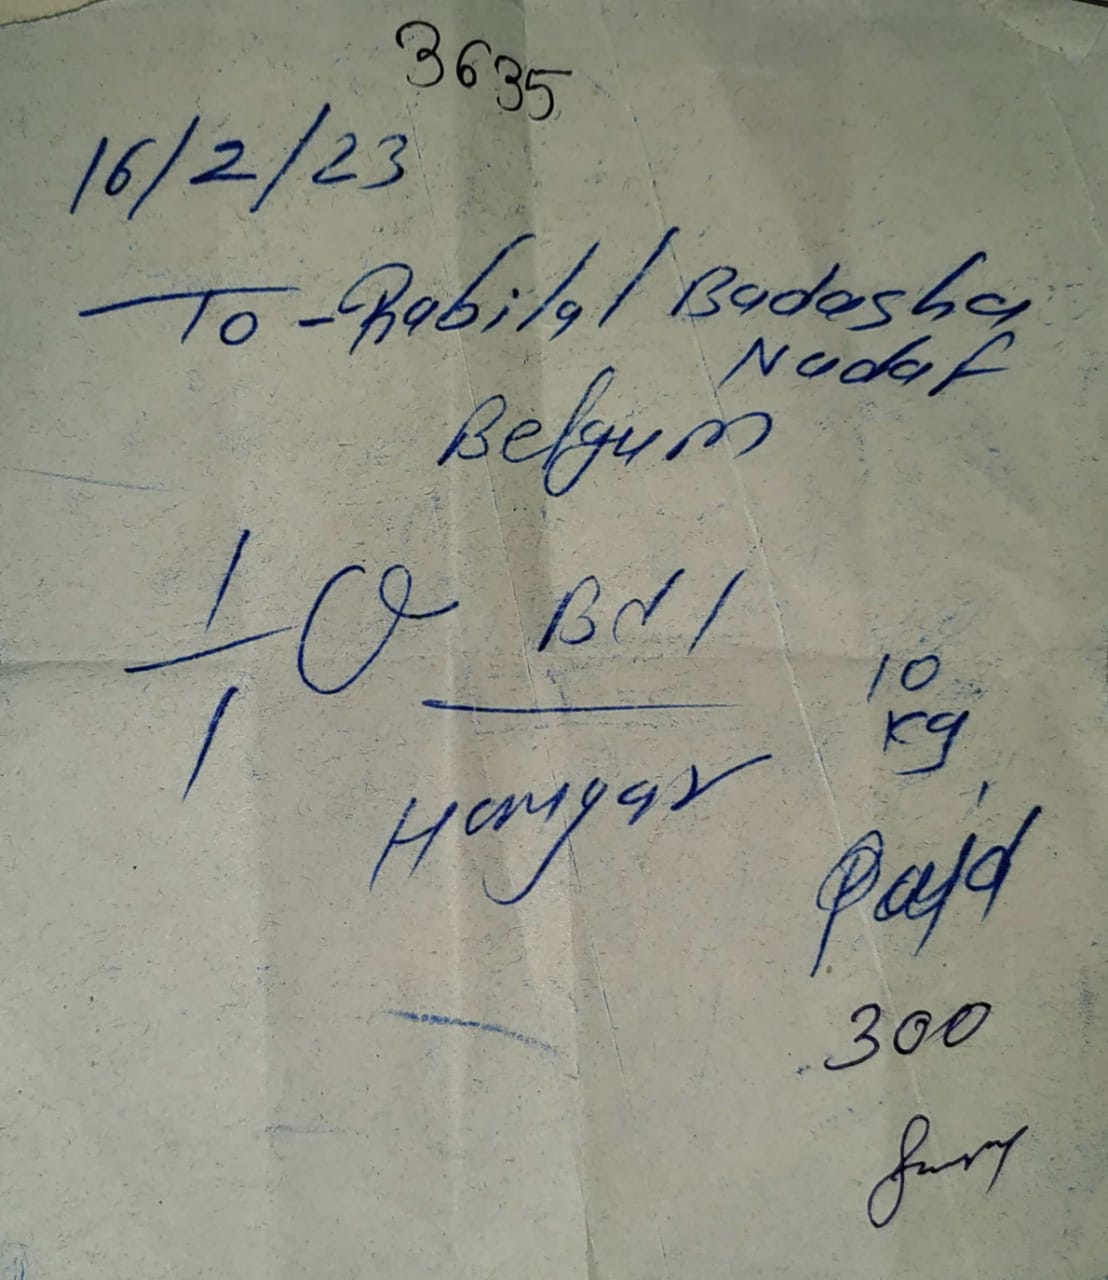 3635
16/2/23
To - Rabilal Badasha
Nadaf
Belgum
1/1 Bdl
10
kg
Paid
300